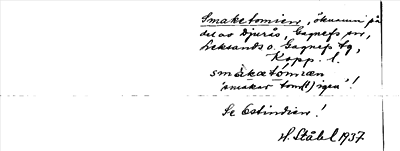 Smaketomien, öknamn på
del av Djurås, Gagnefs sn,
Leksands o. Gagnefs tg,
Kopp. l.
smakatómian
'smakar tom(t) igen'!
Se Ostindien!
H. Ståhl 1937.